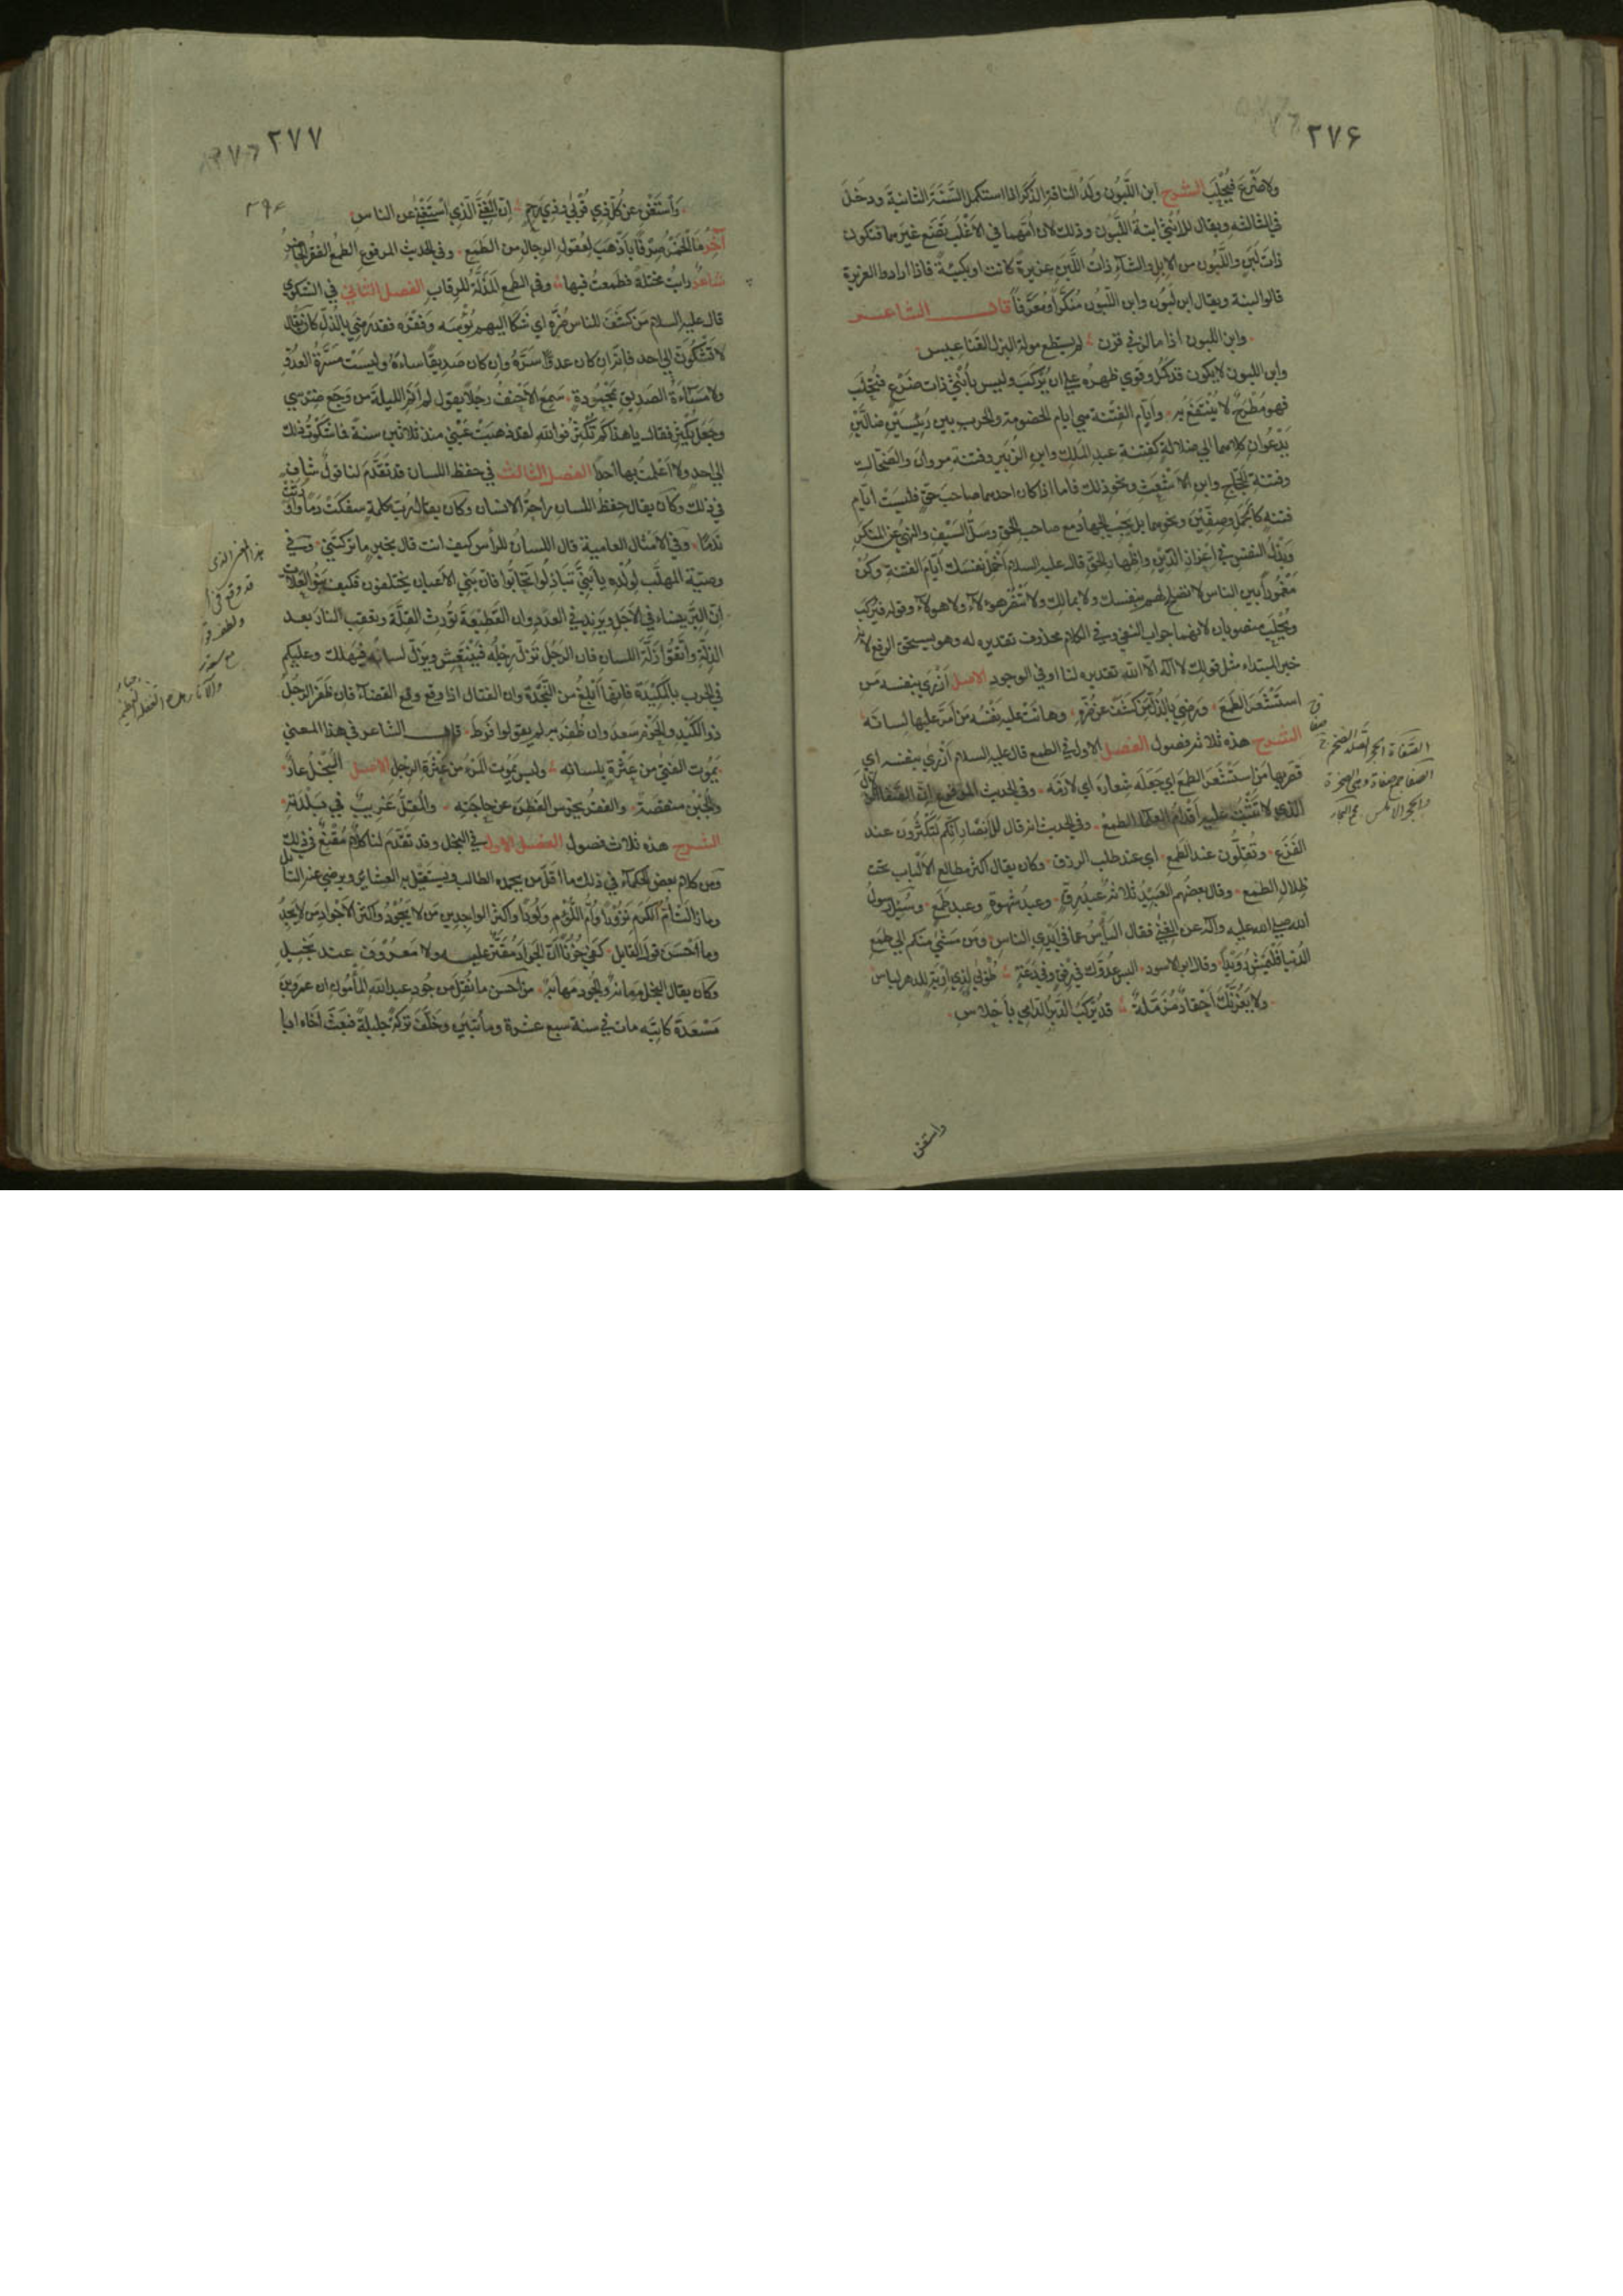 ٢٧۶
ولا ضَرْعَ فيُحْلَبَ الشرح ابن اللَّبُون ولَدُ الناقة الذَّكَر اذا استكمل السَّنَةَ الثانيةَ ودخَلَ
في الثالثه ويقال للأُنثى ابنةُ اللَّبُون وذلك لان اُمَّهما في الاَغْلَب تَضَع غيرَهما فتكون
ذاتَ لَبَنٍ واللَّبُون من الابل والشاء ذاتُ اللَّبَن غزيرةً كانت او بكيئة فاذا ارادوا الغزيرة
قالوا لبنة ويقال ابن لَبُون وابن اللّبُون مُنَكَّراً ومُعَرَّفاً قال الشاعر
وابن اللبون اذا ما لز في قرن لم يستطع صولة البزل القناعيس
وابن اللبون لا يكون قد كمُل وقوي ظهرُه على ان يُرْكَب وليس بأُنْثى ذات ضَرْع فيُحْلَب
فهو مُطَّرَحٌ لا يُنْتَفَعُ به وأَيّام الفِتْنة هي ايام الخصومة والحرب بين رئيسَيْن ضالَّيْن
يَدْعُوان كلاهما الى ضلالة كفِتنة عبد الملك وابن الزبير وفتنة مروان والضحّاك
وفتنة الحجّاج وابن الاشْعَث ونحو ذلك فاما اذا كان احدهما صاحبَ حقّ فليسَتْ ايّام
فتنة كالجَمَل وصِفِّيْنَ ونحوهما بل يَجِبُ الجهادُ مع صاحب الحقّ وسَلُّ السَّيْف والنهيُ عن المنكر
وبَذْلُ النفس في اِعْزاز الدّين واظهار الحقّ قال عليه السلام أخْمِلْ نفسَك أيّامَ الفتنة وكُنْ
مَغْمُوراً بين الناس لا تصلح لهم بنفسك ولا بمالك ولا تَنْصُر هؤلاء ولا هؤلاء وقوله فيُركَبَ
ويُحْلَبَ منصوبان لانهما جواب النفي وفي الكلام محذوف تقديره له وهو يستحق الرفع لانه
خبر المبتداء مثل قولك لا اله الّا الله تقديره لنا او في الوجود الاصل أَزْرى بنفسه مَن
استَشْعَرَ الطَّمَعَ ورَضِيَ بالذُّلّ مَن كَشَفَ عن ضُرِّه وهانَتْ عليه نَفْسُه مَن اَمَّرَ عليها لسانَه
الشرح هذه ثلاثة فصول الفصل الاول في الطمع قال عليه السلام أَزْرى بنفسه اي
قصّر بها مَن استَشْعَرَ الطمعَ اي جَعَلَه شِعارَه اي لازَمَه وفي الحديث المرفوع انّ الصَّفا الزلال
الذي لا تَثْبُتُ عليه أَقْدامُ العلماء الطمعُ وفي الحديث انه قال للأنصار إنّكم لَتَكْثُرُونَ عند
الفَزَع وتَقِلّون عند الطمع اي عند طلب الرزق وكان يقال أكثر مصارع الأَلْباب تحت
ظِلال الطمع وقال بعضُهم العَبِيْدُ ثلاثة عبدُ رِقٍّ وعبدُ شهوةٍ وعبدِ طَمَع وسُئل رسولُ
الله صلى الله عليه وآله عن الغِنى فقال اليأسُ عما في أَيْدِي الناسِ ومَن مَشى منكم الى طمَع
الدُّنيا فلْيَمْشِ رُوَيْداً وقال ابو الاسود البس عدُوَّك في رِفْقٍ وفي دَعَةٍ طُوْبى لذي اِرْبةٍ للدهر لباس
ولا يَغُرَّنْك أَحْقادٌ مُزَمَّلةٌ قد يُرْكَبُ الدَّبَرُ الدّامِي بأَحْلاسِ
واستغن
الصفا جمع صفاة وهي الصخرة
٢٧٧
٣٩۶
وَاسْتَغْنِ عن كلّ ذي قُرْبى وذي رَحِمٍ اِنّ الغَنِيَّ الذي اسْتَغْنى عن الناس
آخَرُ ما الخَمْرُ صِرْفاً بأَذْهَبَ لِعُقولِ الرجال من الطمَع وفي الحديث المرفوع الطمعُ الفقرُ الحاضرُ
شاعرٌ رابتُ مخيلةً فطَمِعتُ فيها وفي الطمع المَذَلَّةُ للرقاب الفصل الثاني في الشكوى
قال عليه السلام مَن كشَفَ للناس ضُرَّه اي شَكا اليهم بُؤْسَه وفَقْرَه فقد رضي بالذُّل كان يقال
لا تَشْكُوَنَّ الى احد فانه ان كان عدوّاً سَرَّهُ وان كان صديقاً ساءهُ وليسَتْ مَسَرَّةُ العدُوّ
ولا مَسَاءةُ الصديق بمَحْمُودةٍ سَمِعَ الأحنفُ رجُلاً يقول لم أَنَمِ الليلةَ من وَجَع ضِرْسي
وجَعَلَ يُكْثِرُ فقال يا هذا كم تُكْثِرُ فوالله لقد ذهبَتْ عَيْني منذ ثلاثين سنة فما شَكَوتُ ذلك
الى احد ولا أَعْلمتُ بها احداً الفصل الثالث في حفظ اللسان قد تَقَدَّمَ لنا قولٌ شافٍ
في ذلك وكان يقال حِفظُ اللسان راحةُ الانسان وكان يقال رُبَ كلمة سفَكَتْ دَماً واَوْرَثَتْ
نَدَماً وفي الاَمْثال العامية قال اللسانُ للرأس كيف انت قال بخيرٍ ما تركتَني وفي
وصيّة المهلَّب لوُلْده يا بَنِيَّ تَباذَلُوا تَحابُّوا فانّ بَني الأعيان يختلفون فكيف بَنُو العَلّات
اِنّ البِرَّ ينساء في الأجَل ويَزيد في العدَد وان القَطيعةَ تُورِث القِلّةَ ويعقب النارَ بعد
الذِلّةِ واتَّقُوا زَلَّةَ اللسان فان الرجُلَ تَزِلّ رِجْلُه فيَنْتَعِش ويَزِلّ لسانُه فيَهْلك وعليكم
في الحرب بالمَكِيْدَة فانّها أَبْلَغُ من النَّجْدة وان القتال اذا وقع وقع القضاء فان ظَفِر الرجُلُ
ذو الكَيْد والحَزْم سَعِدَ وان ظُفِرَ به لم يقولوا فَرَّطَ قال الشاعر في هذا المعنى
يَمُوت الفتى من عَثْرةٍ بلسانِه وليس يَمُوت المَرْءُ من عَثْرَةِ الرِجل الاصل البُخْلُ عارٌ
والجُبْن منقصةٌ والفقرُ يُخرِس الفَطِنَ عن حاجتِه والمُقِلُّ غريبٌ في بَلْدَتِه
الشرح هذه ثلاث فصول الفصل الاول في البخل وقد تقدّم لنا كلامٌ مُقْنِعٌ في ذلك
ومن كلام بعض الحكماء في ذلك ما اقلّ من يحمده الطالب ويَستقِلّ به العشائر ويرضى عنه السائل
وما زالَتْ أُمُّ الكَرَم نَزُوْراً واُمُّ اللُّؤْم وَلُوداً وأكثرُ الواجدين مَن لا يَجُوْدُ وأكثر الأجْواد مَن لا يَجِدُ
وما أَحْسَنَ قولَ القايل كفى حُزْناً أنّ الجَوادَ مُقَتّرٌ عليه ولا مَعْرُوْفَ عند بَخِيل
وكان يقال البخل مَهانةٌ والجُود مَهابةٌ من أحسن ما نُقِلَ من جُود عبد الله المأمُون ان عمرو بن
مَسْعَدَةَ كاتِبَه مات في سنة سبع عشرة ومأتين وخَلَّفَ تركةً جليلةً فبَعَثَ أخاه ابا